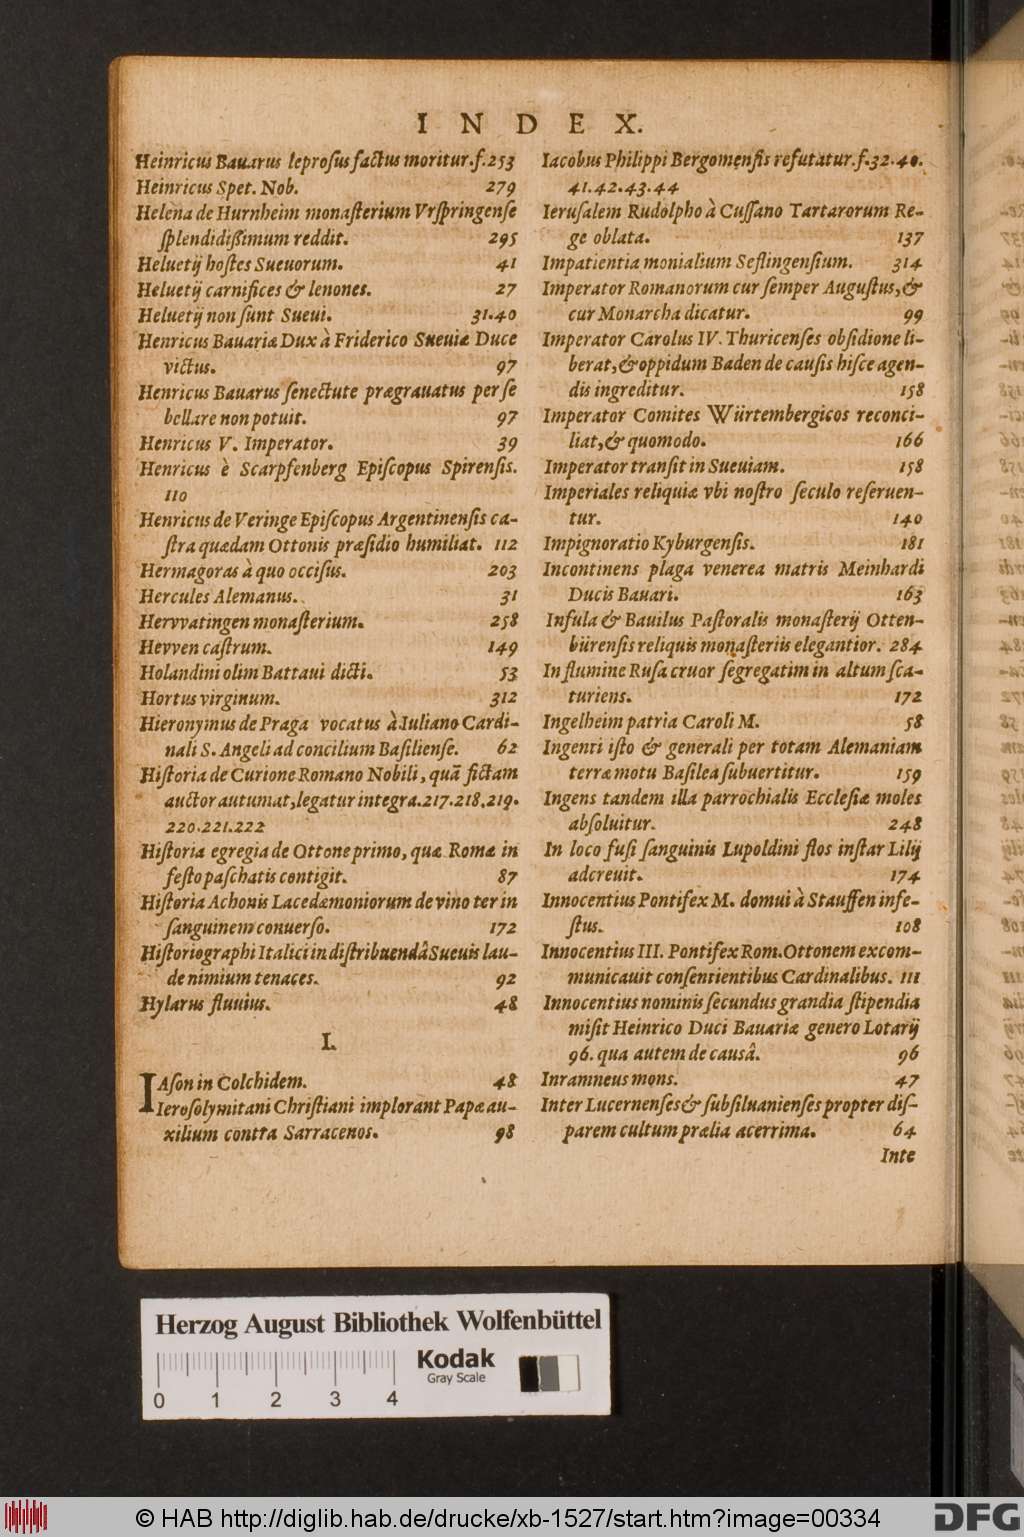 INDEX.
Heinricus Bauarus leproſus factus moritur.f.253
Heinricus Spet. Nob. 279
Helena de Hurnheim monaſterium Vrſpringenſe
ſplendidißimum reddit. 295
Heluetij hoſtes Sueuorum. 41
Heluetij carnifices & lenones. 27
Heluetij non ſunt Sueui. 31.40
Henricus Bauariæ Dux à Friderico Sueuiæ Duce
victus. 97
Henricus Bauarus ſenectute prægrauatus per ſe
bellare non potuit. 97
Henricus V. Imperator. 39
Henricus è Scarpfenberg Epiſcopus Spirenſis.
110
Henricus de Veringe Epiſcopus Argentinenſis ca-
ſtra quædam Ottonis præſidio humiliat. 112
Hermagoras à quo occiſus. 203
Hercules Alemanus. 31
Hervvatingen monaſterium. 258
Hevven caſtrum. 149
Holandini olim Battaui dicti. 53
Hortus virginum. 312
Hieronymus de Praga vocatus à Iuliano Cardi-
nali S. Angeli ad concilium Baſilienſe. 62
Hiſtoria de Curione Romano Nobili, quā fictam
auctor autumat, legatur integra.217.218.219.
220.221.222
Hiſtoria egregia de Ottone primo, quæ Romæ in
feſto paſchatis contigit. 87
Hiſtoria Achonis Lacedæmoniorum de vino ter in
ſanguinem conuerſo. 172
Hiſtoriographi Italici in diſtribuendâ Sueuis lau-
de nimium tenaces. 92
Hylarus fluuius. 48
I.
IAſon in Colchidem. 48
Ieroſolymitani Chriſtiani implorant Papæ au-
xilium contra Sarracenos. 98
Iacobus Philippi Bergomenſis refutatur.f.32.40.
41.42.43.44
Ieruſalem Rudolpho à Cuſſano Tartarorum Re-
ge oblata. 137
Impatientia monialium Seflingenſium. 314
Imperator Romanorum cur ſemper Auguſtus, &
cur Monarcha dicatur. 99
Imperator Carolus IV. Thuricenſes obſidione li-
berat, & oppidum Baden de cauſis hiſce agen-
dis ingreditur. 158
Imperator Comites Würtembergicos reconci-
liat, & quomodo. 166
Imperator tranſit in Sueuiam. 158
Imperiales reliquiæ vbi noſtro ſeculo reſeruen-
tur. 140
Impignoratio Kyburgenſis. 181
Incontinens plaga venerea matris Meinhardi
Ducis Bauari. 163
Inſula & Bauilus Paſtoralis monaſterij Otten-
bürenſis reliquis monaſteriis elegantior. 284
In flumine Ruſa cruor ſegregatim in altum ſca-
turiens. 172
Ingelheim patria Caroli M. 58
Ingenti iſto & generali per totam Alemaniam
terræ motu Baſilea ſubuertitur. 159
Ingens tandem illa parrochialis Eccleſiæ moles
abſoluitur. 248
In loco fuſi ſanguinis Lupoldini flos inſtar Lilij
adcreuit. 174
Innocentius Pontifex M. domui à Stauffen infe-
ſtus. 108
Innocentius III. Pontifex Rom. Ottonem excom-
municauit conſentientibus Cardinalibus. 111
Innocentius nominis ſecundus grandia ſtipendia
miſit Heinrico Duci Bauariæ genero Lotarij
96. qua autem de causâ. 96
Inramneus mons. 47
Inter Lucernenſes & ſubſiluanienſes propter diſ-
parem cultum prælia acerrima. 64
Inte
Herzog August Bibliothek Wolfenbüttel
Kodak
Gray Scale
0 1 2 3 4
© HAB http://diglib.hab.de/drucke/xb-1527/start.htm?image=00334
DFG